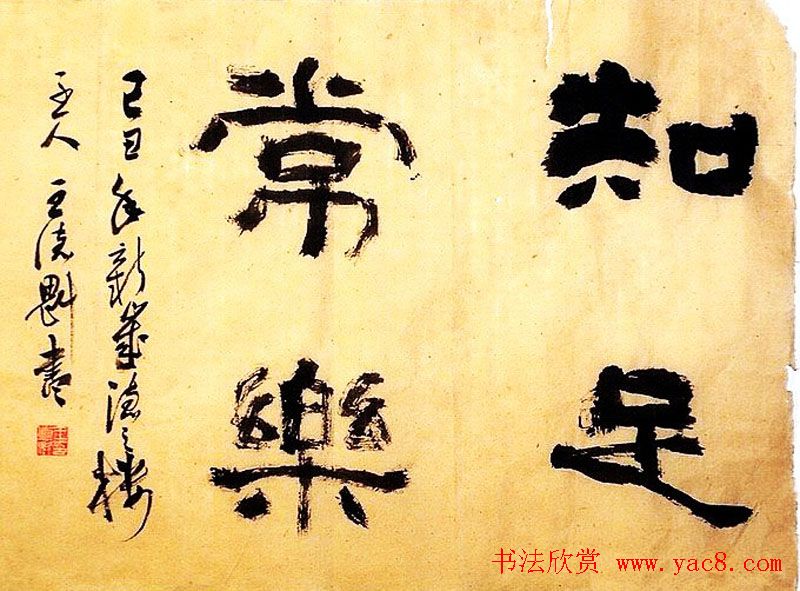 知足
常樂
己丑年新歲之樓
主人 王魁書
书法欣赏 www.yac8.com